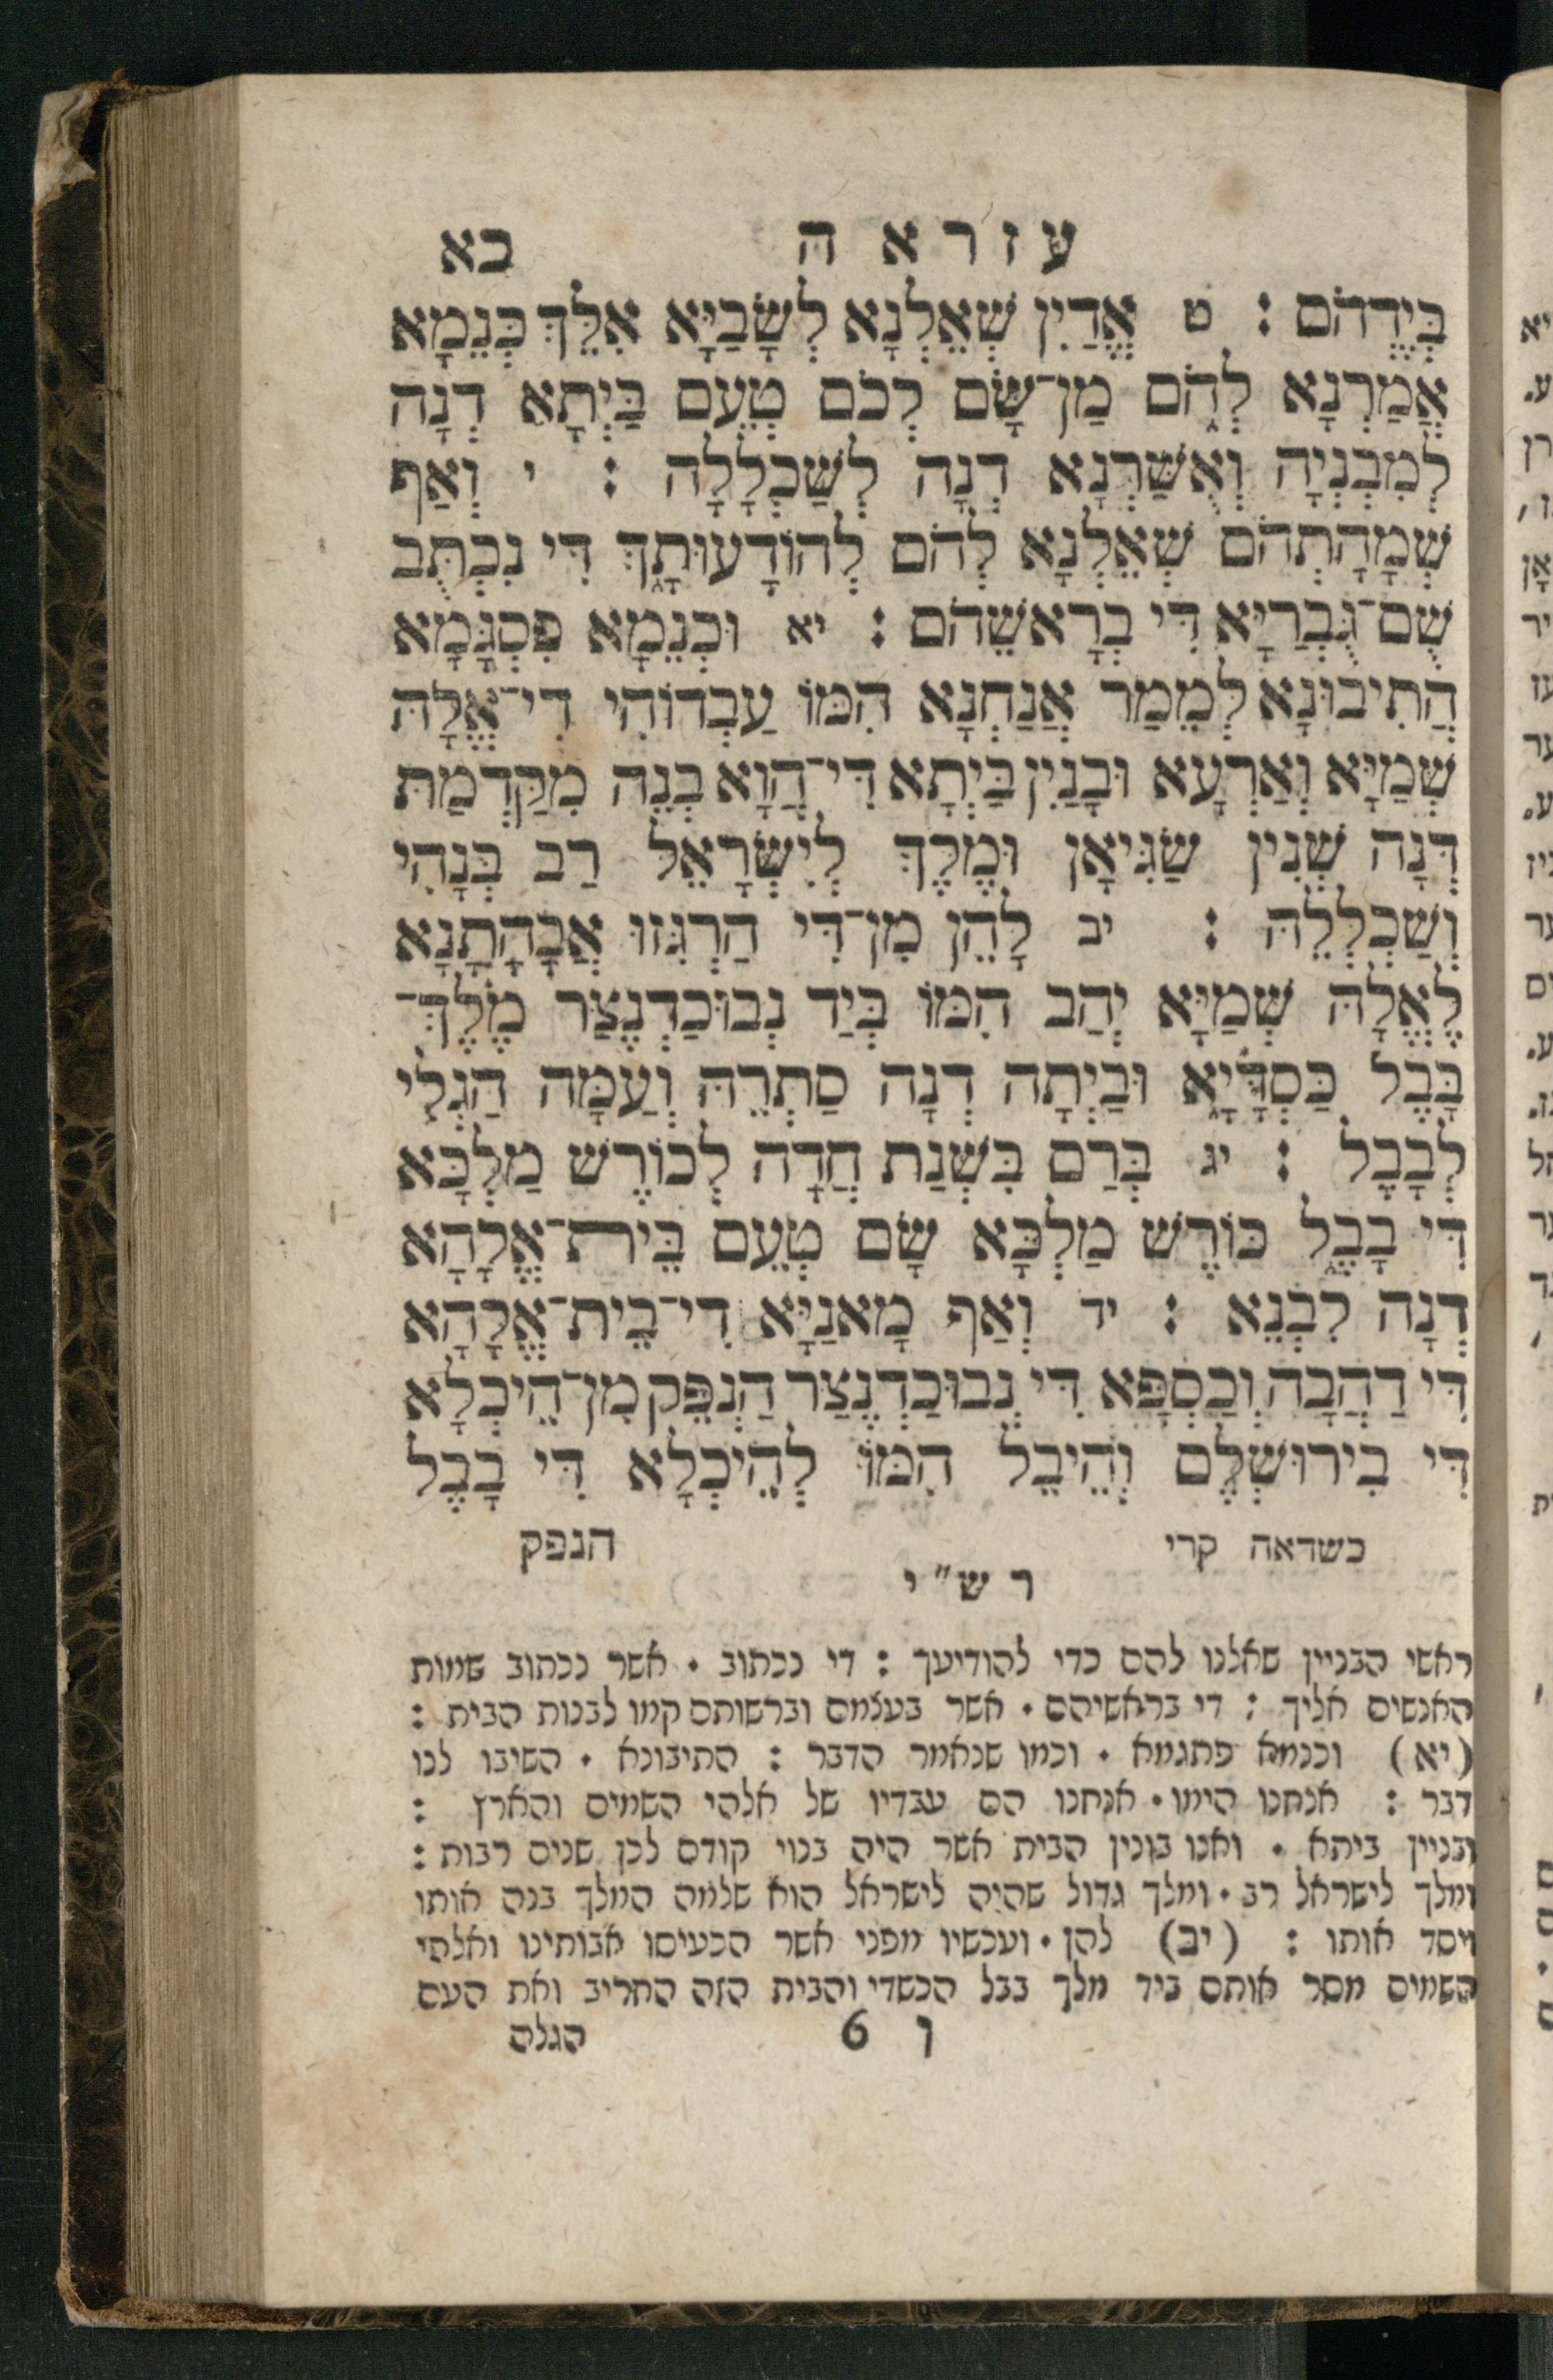 עזרא ה כא
בְּיֶדְהֹם : ט אֱדַיִן שְׁאֵלְנָא לְשָׂבַיָּא אִלֵּךְ כְּנֵמָא
אֲמַרְנָא לְהֹם מַן־שָׂם לְכֹם טְעֵם בַּיְתָא דְנָה
לְמִבְנְיָה וְאֻשַּׁרְנָא דְנָה לְשַׁכְלָלָה : י וְאַף
שְׁמָהָתְהֹם שְׁאֵלְנָא לְהֹם לְהוֹדָעוּתָךְ דִּי נִכְתֻּב
שֻׁם־גֻּבְרַיָּא דִּי בְרָאשֵׁהֹם : יא וּכְנֵמָא פִּסְגָּמָא
הֲתִיבוּנָא לְמֵמַר אֲנַחְנָא הִמּוֹ עַבְדוֹהִי דִי־אֱלָהּ
שְׁמַיָּא וְאַרְעָא וּבָנַיִן בַּיְתָא דִּי־הֲוָא בְנֵה מִקַּדְמַת
דְּנָה שְׁנִין שַׂגִּיאָן וּמֶלֶךְ לְיִשְׂרָאֵל רַב בְּנָהִי
וְשַׁכְלְלֵהּ : יב לָהֵן מִן־דִּי הַרְגִּזוּ אֲבָהֳתַנָא
לֶאֱלָהּ שְׁמַיָּא יְהַב הִמּוֹ בְּיַד נְבוּכַדְנֶצַּר מֶלֶךְ־
בָּבֶל כַּסְדָּיָא וּבַיְתָה דְנָה סַתְרֵהּ וְעַמָּה הַגְלִי
לְבָבֶל : יג בְּרַם בִּשְׁנַת חֲדָה לְכוֹרֶשׁ מַלְכָּא
דִּי בָבֶל כּוֹרֶשׁ מַלְכָּא שָׂם טְעֵם בֵּית־אֱלָהָא
דְנָה לִבְנֵא : יד וְאַף מָאנַיָּא דִי־בֵית־אֱלָהָא
דִּי דַהֲבָה וְכַסְפָּא דִּי נְבוּכַדְנֶצַּר הַנְפֵּק מִן־הֵיכְלָא
דִּי בִירוּשְׁלֶם וְהֵיבֵל הִמּוֹ לְהֵיכְלָא דִּי בָבֶל
כשדאה קרי הנפק
רש״י
ראשי הבניין שאלנו להם כדי להודיעך : די נכתוב . אשר נכתוב שמות
האנשים אליך : די בראשיהם . אשר בעצמם וברשותם קמו לבנות הבית :
(יא) וכנמא פתגמא . וכמו שנאמר הדבר : התיבונא . השיבו לנו
דבר : אנחנו הימו . אנחנו הם עבדיו של אלהי השמים והארץ :
ובניין ביתא . ואנו בונין הבית אשר היה בנוי קודם לכן שנים רבות :
ומלך לישראל רב . ומלך גדול שהיה לישראל הוא שלמה המלך בנה אותו
ויסד אותו : (יב) להן . ועכשיו מפני אשר הכעיסו אבותינו ואלהי
השמים מסר אותם ביד מלך בבל הכשדי והבית הזה החריב ואת העם
ו 6 הגלה